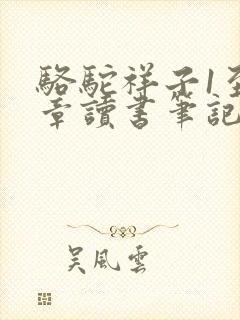 駱駝祥子1至
章讀書筆記
吴風雲